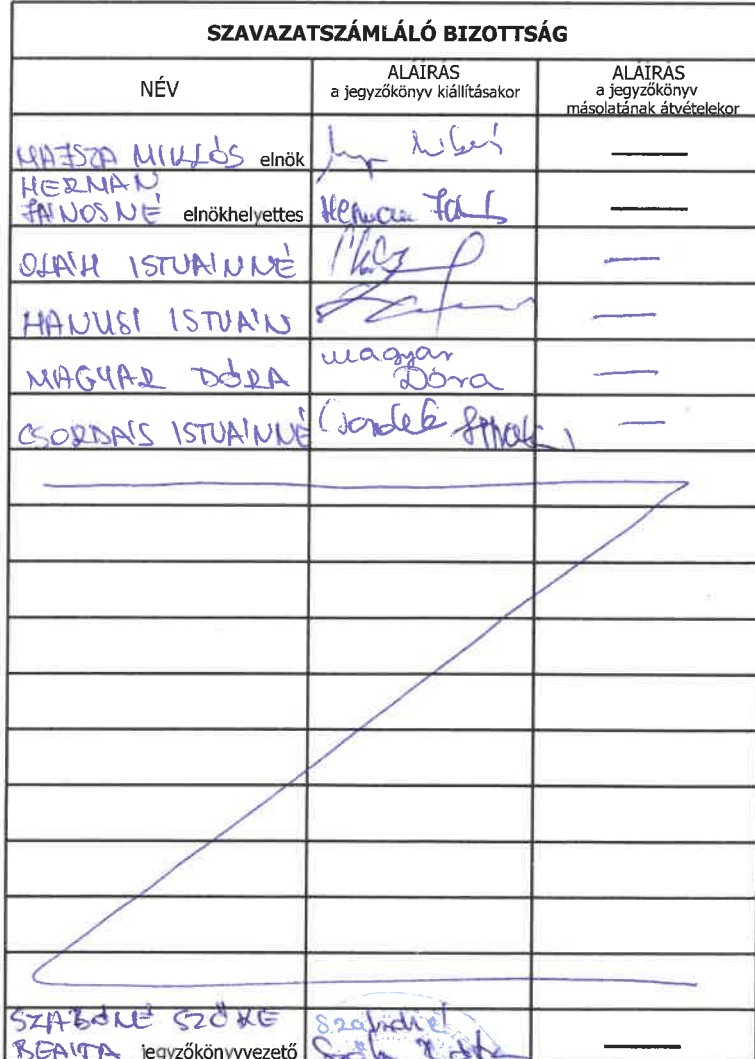 SZAVAZATSZÁMLÁLÓ BIZOTTSÁG
NÉV
ALÁÍRÁS
a jegyzőkönyv kiállításakor
ALÁÍRÁS
a jegyzőkönyv
másolatának átvételekor
MAJSZA MIKLÓS elnök
HERMAN
JÁNOSNÉ elnökhelyettes
OLÁH ISTVÁNNÉ
HANUSI ISTVÁN
MAGYAR DÓRA
magyar
Dóra
CSORDÁS ISTVÁNNÉ
SZABÓNÉ SZŐKE
BEÁTA jegyzőkönyvvezető
Szabóné